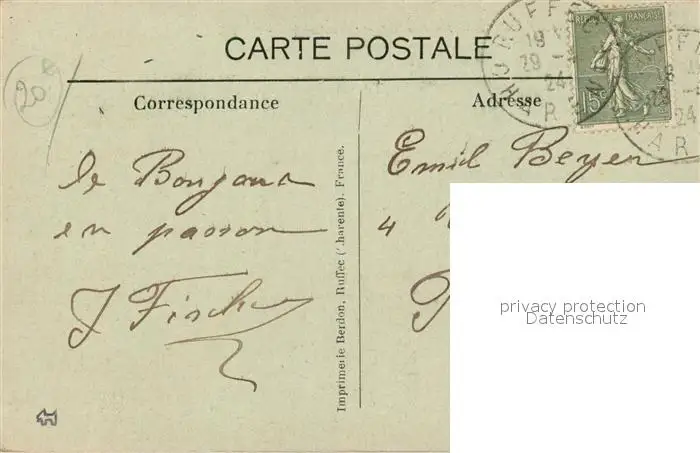 CARTE POSTALE
Correspondance
Adresse
RUFFEC
CHARENTE
19
29 -
24
REPUBLIQUE FRANÇAISE
15c
20
le Bonjour
en passan
J Fischer
Emil Beyer
4
Imprimerie Berdon, Ruffec (Charente). France.
privacy protection
Datenschutz